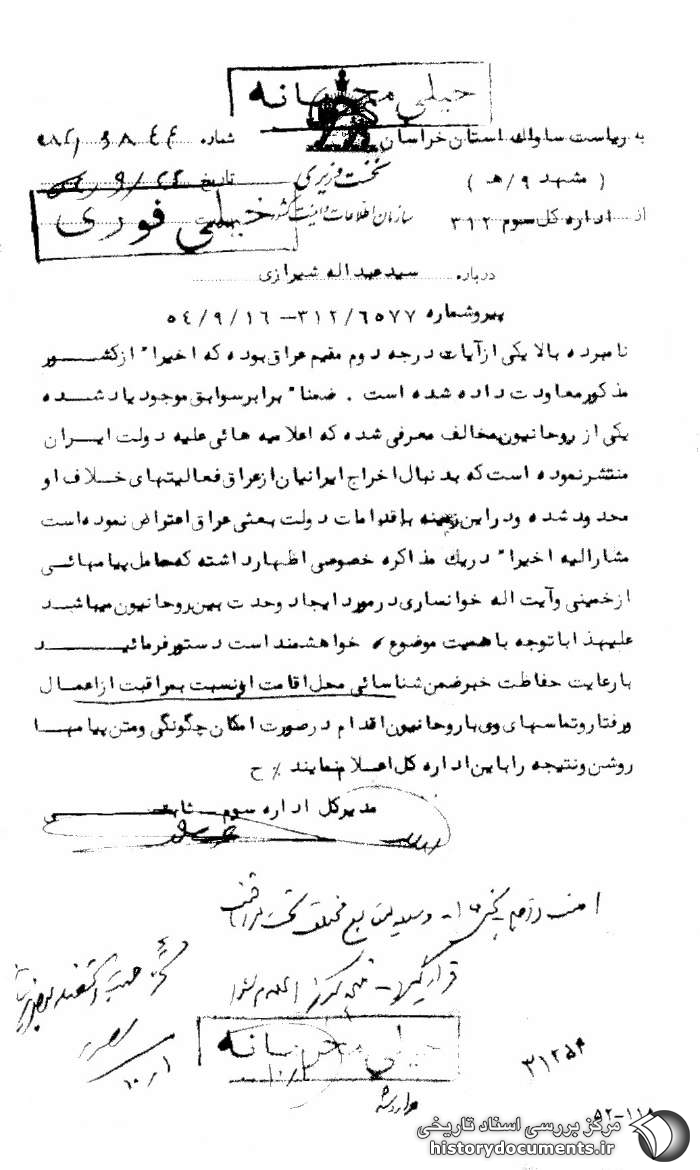 خیلی محرمانه
به ریاست ساواک استان خراسان
شماره
نخست وزیری
( مشهد ۹/ هـ )
تاریخ
سازمان اطلاعات و امنیت کشور
از اداره کل سوم ۳۱۲
خیلی فوری
درباره سیدعبداله شیرازی
پیرو شماره ۳۱۲/۶۵۷۷ – ۵۴/۹/۱۶
نامبرده بالا یکی ازآیات درجه دوم مقیم عراق بوده که اخیرا" ازکشور
مذکورمعاودت داده شده است . ضمنا" برابرسوابق موجود یاد شده
یکی از روحانیون مخالف معرفی شده که اعلامیه هائی علیه دولت ایران
منتشرنموده است که بدنبال اخراج ایرانیان ازعراق فعالیتهای خلاف او
محدود شده ودراین زمینه باقدامات دولت بعثی عراق اعتراض نموده است
مشارالیه اخیرا" دریك مذاکره خصوصی اظهارداشته که حامل پیامهائی
ازخمینی وآیت اله خوانساری درمورد ایجاد وحدت بین روحانیون میباشد
علیهذا باتوجه باهمیت موضوع ، خواهشمند است دستورفرمائید
بارعایت حفاظت خبرضمن شناسائی محل اقامت اونسبت بمراقبت ازاعمال
ورفتاروتماسهای وی باروحانیون اقدام درصورت امکان چگونگی ومتن پیامها
روشن ونتیجه راباین اداره کل اعلام نمایند ٪ ح
مدیرکل اداره سوم ثابتی
قرار گیرد
خیلی محرمانه
۳۱۲۵۴
۵۲-۱۱۸
مرکز بررسی اسناد تاریخی
historydocuments.ir